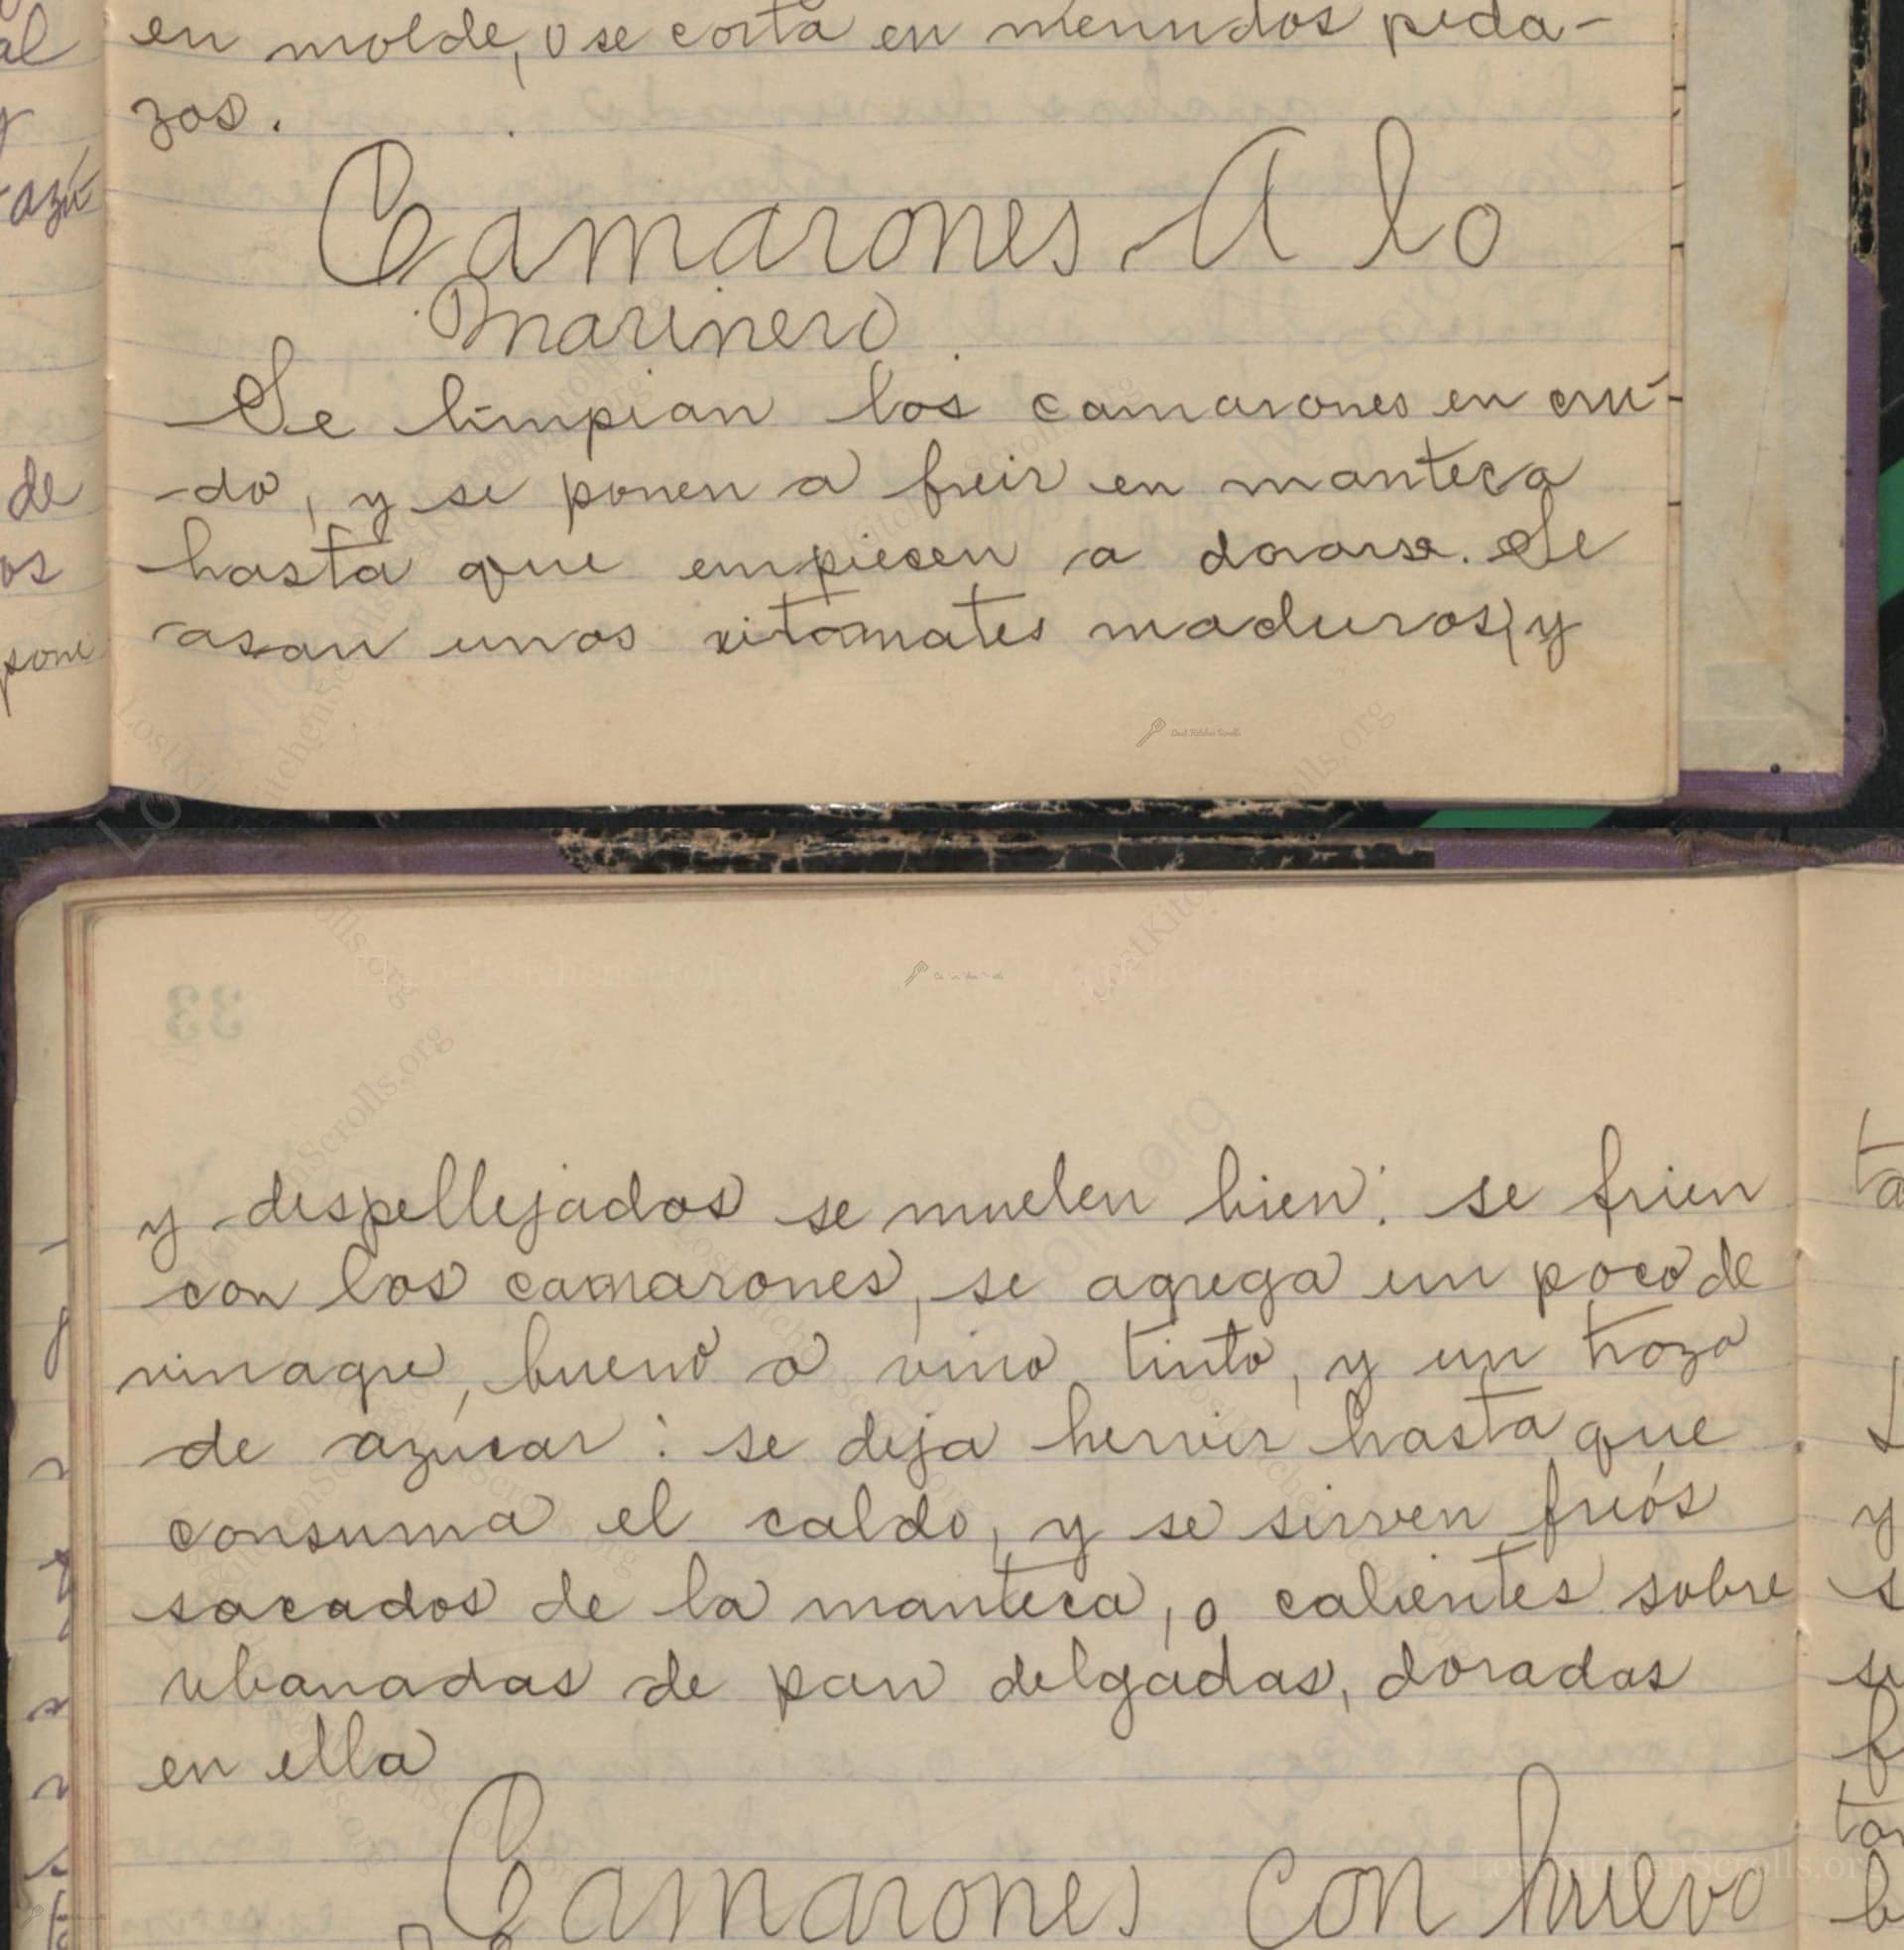 en molde, o se corta en menudos peda-
zos.
Camarones A lo
marinero
Se limpian los camarones en cru-
-do, y se ponen a freir en manteca
hasta que empiesen a dorarse. Se
asan unos xitomates maduros, y
y despellejados se muelen bien: se frien
con los camarones, se agrega un poco de
vinagre, bueno o vino tinto, y un trozo
de azúcar: se deja hervir hasta que
consuma el caldo, y se sirven friós
sacados de la manteca, o calientes sobre
rebanadas de pan delgadas, doradas
en ella
Camarones con huevo